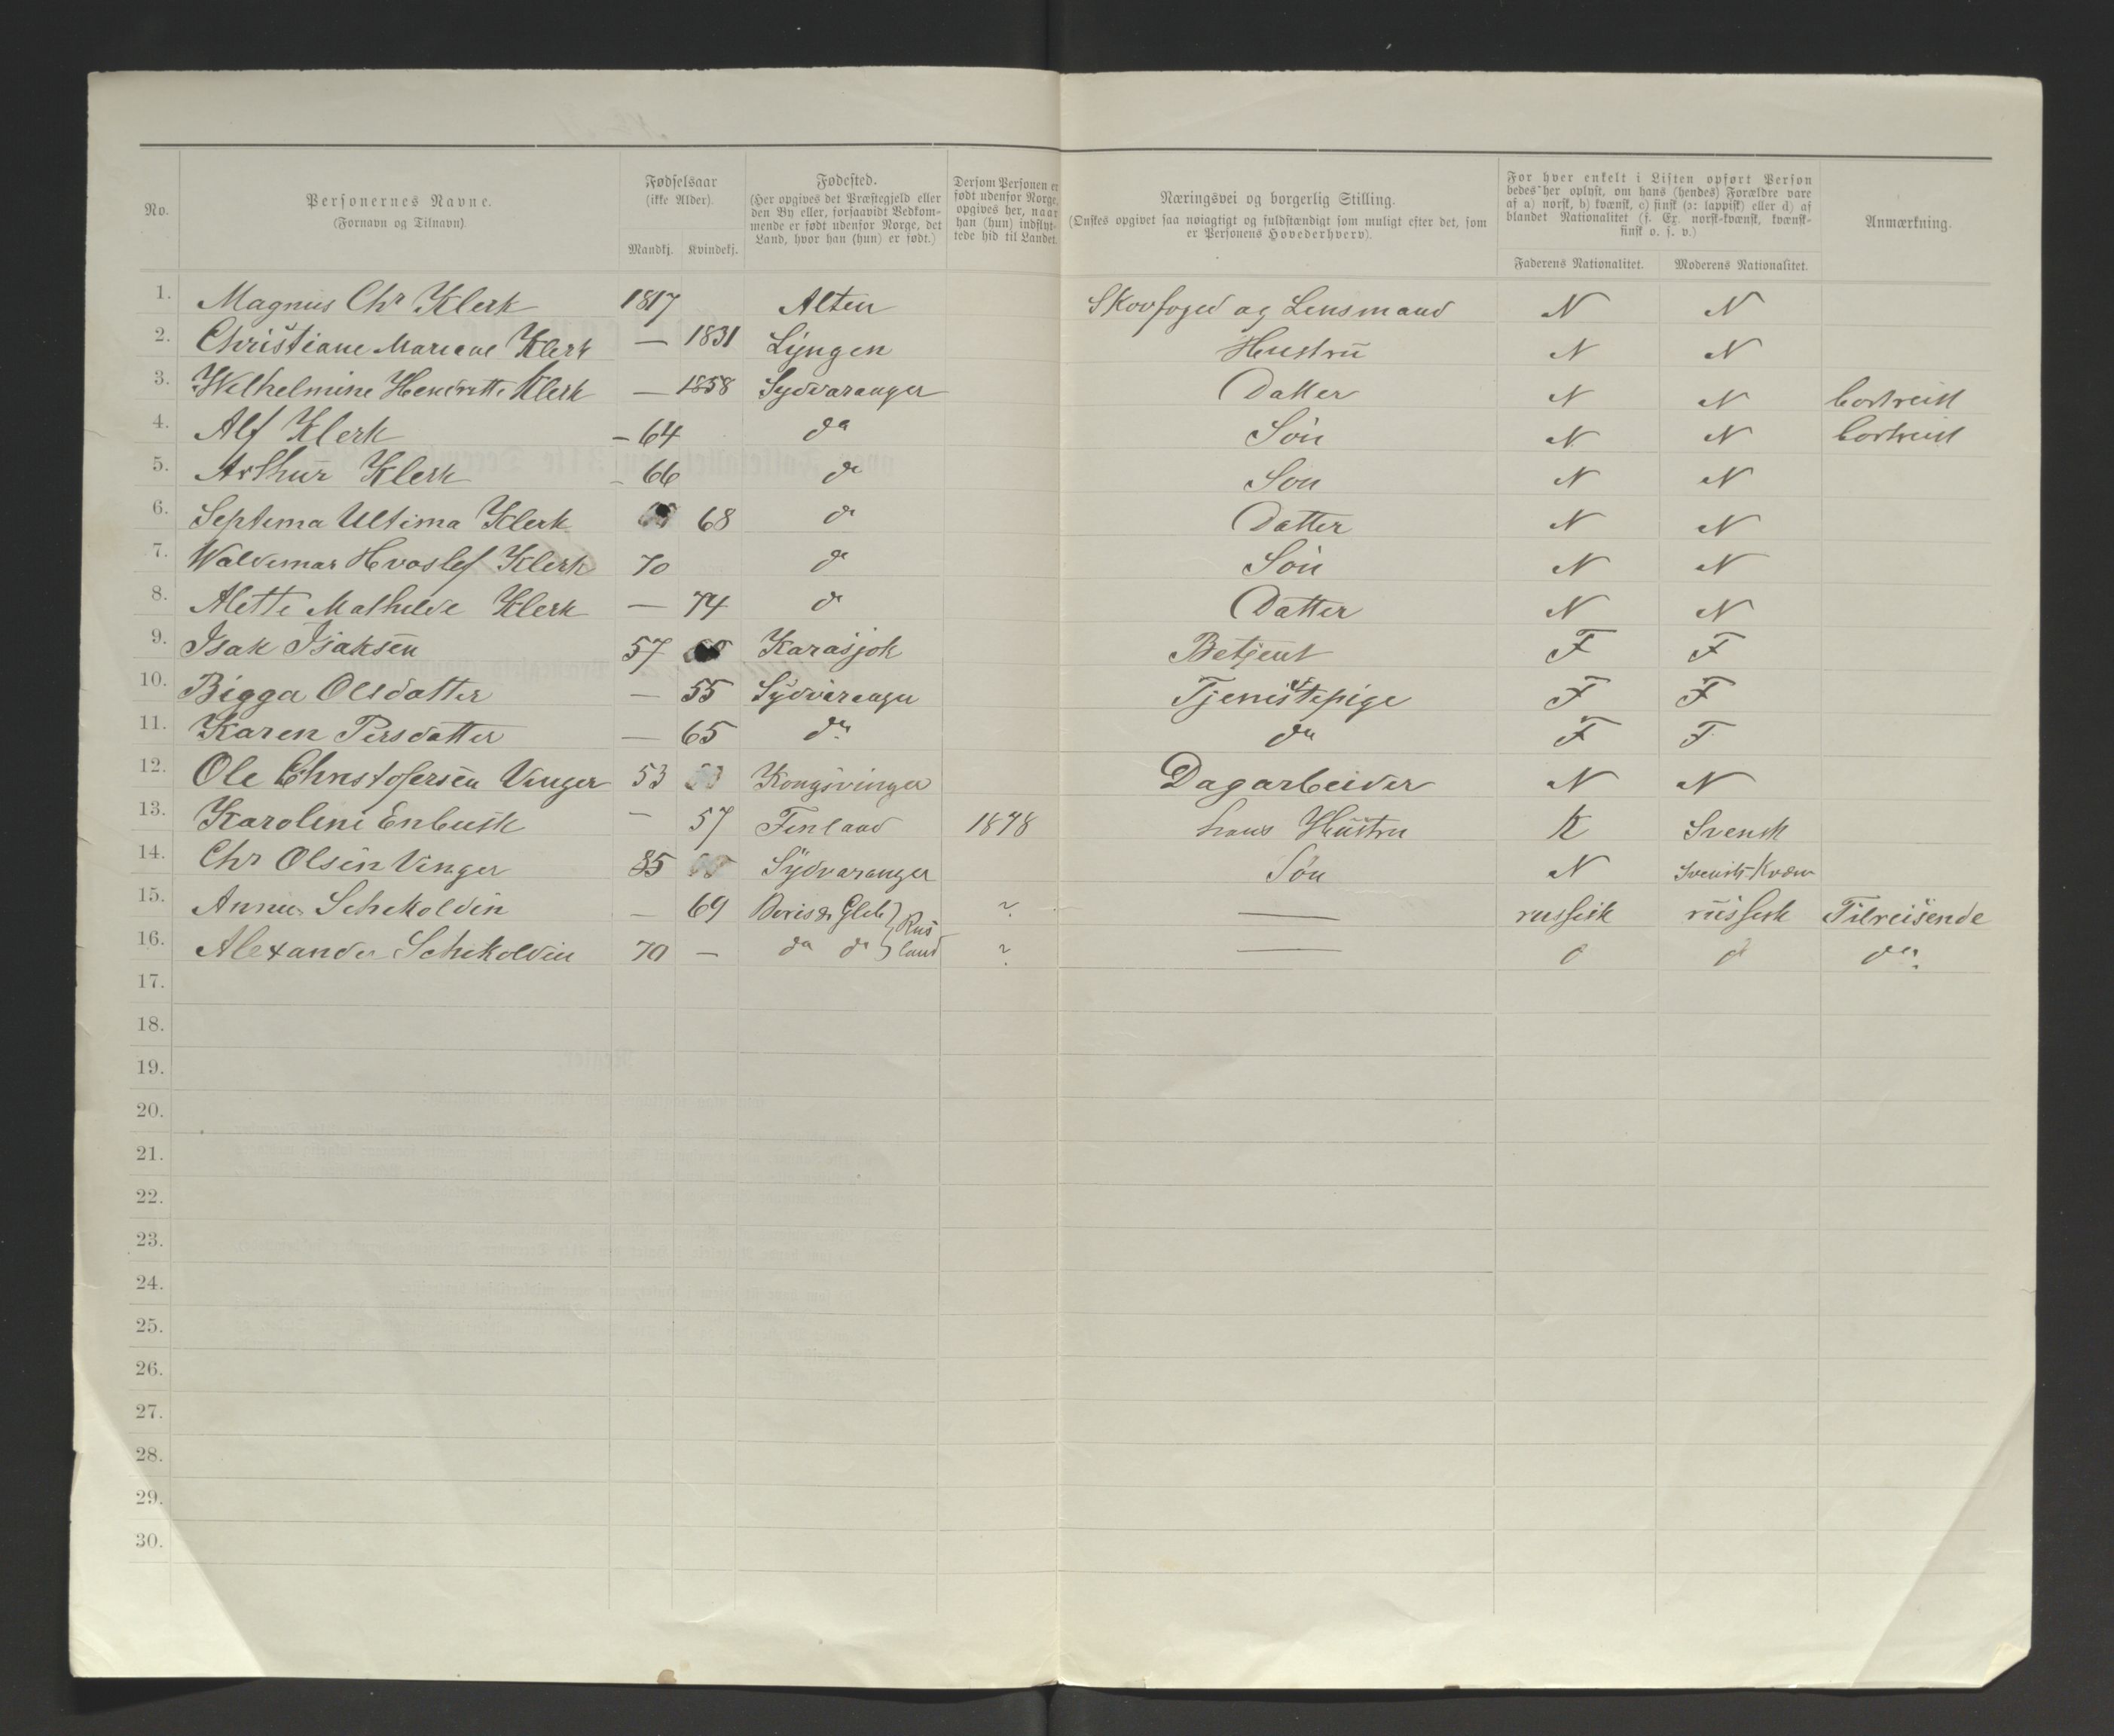 No.
Personernes Navne.
(Fornavn og Tilnavn)
Fødselsaar
(ikke Alder).
Mandkj. Kvindekj.
Fødested.
(Her opgives det Præstegjeld eller
den By eller, forsaavidt Vedkom-
mende er født udenfor Norge, det
Land, hvor han (hun) er født.)
Dersom Personen er
født udenfor Norge,
opgives her, naar
han (hun) indflyt-
tede hid til Landet.
Næringsvei og borgerlig Stilling.
(Ønskes opgivet saa nøiagtigt og fuldstændigt som muligt efter det, som
er Personens Hovederhverv).
For hver enkelt i Listen opført Person
bedes her oplyst, om hans (hendes) Forældre vare
af a) norsk, b) kvænsk, c) finsk (ɔ: lappisk) eller d) af
blandet Nationalitet (f. Ex. norsk-kvænsk, kvænsk-
finsk o. s. v.)
Faderens Nationalitet. Moderens Nationalitet.
Anmærkning.
1. Magnus Chr Klerk 1817 Alten Skovfoged og Lensmand N N
2. Christiane Mareane Klerk — 1831 Lyngen Hustru N N
3. Wilhelmine Hendrette Klerk — 1858 Sydvaranger Datter N N bortreist
4. Alf Klerk - 64 do Søn N N bortreist
5. Arthur Klerk - 66 do Søn N N
6. Septema Ultima Klerk 68 do Datter N N
7. Waldemar Hvoslef Klerk 70 do Søn N N
8. Alette Mathilde Klerk — 74 do Datter N N
9. Isak Isaksen 57 Karasjok Betjent F F
10. Bigga Olsdatter — 55 Sydvaranger Tjenistepige F F
11. Karen Persdatter — 65 do do F F
12. Ole Christofersen Vinger 53 Kongsvinger Dagarbeider N N
13. Karoline Enbusk — 57 Finland 1878 hans Hustru K Svensk
14. Chr Olsen Vinger 85 Sydvaranger Søn N Svensk-Kvæn
15. Anna Schekoldin — 69 Boris & Gleb } Rus ? — russisk russisk Tilreisende
16. Alexander Schekoldin 70 — do do } land ? — d do do.
17.
18.
19.
20.
21.
22.
23.
24.
25.
26.
27.
28.
29.
30.